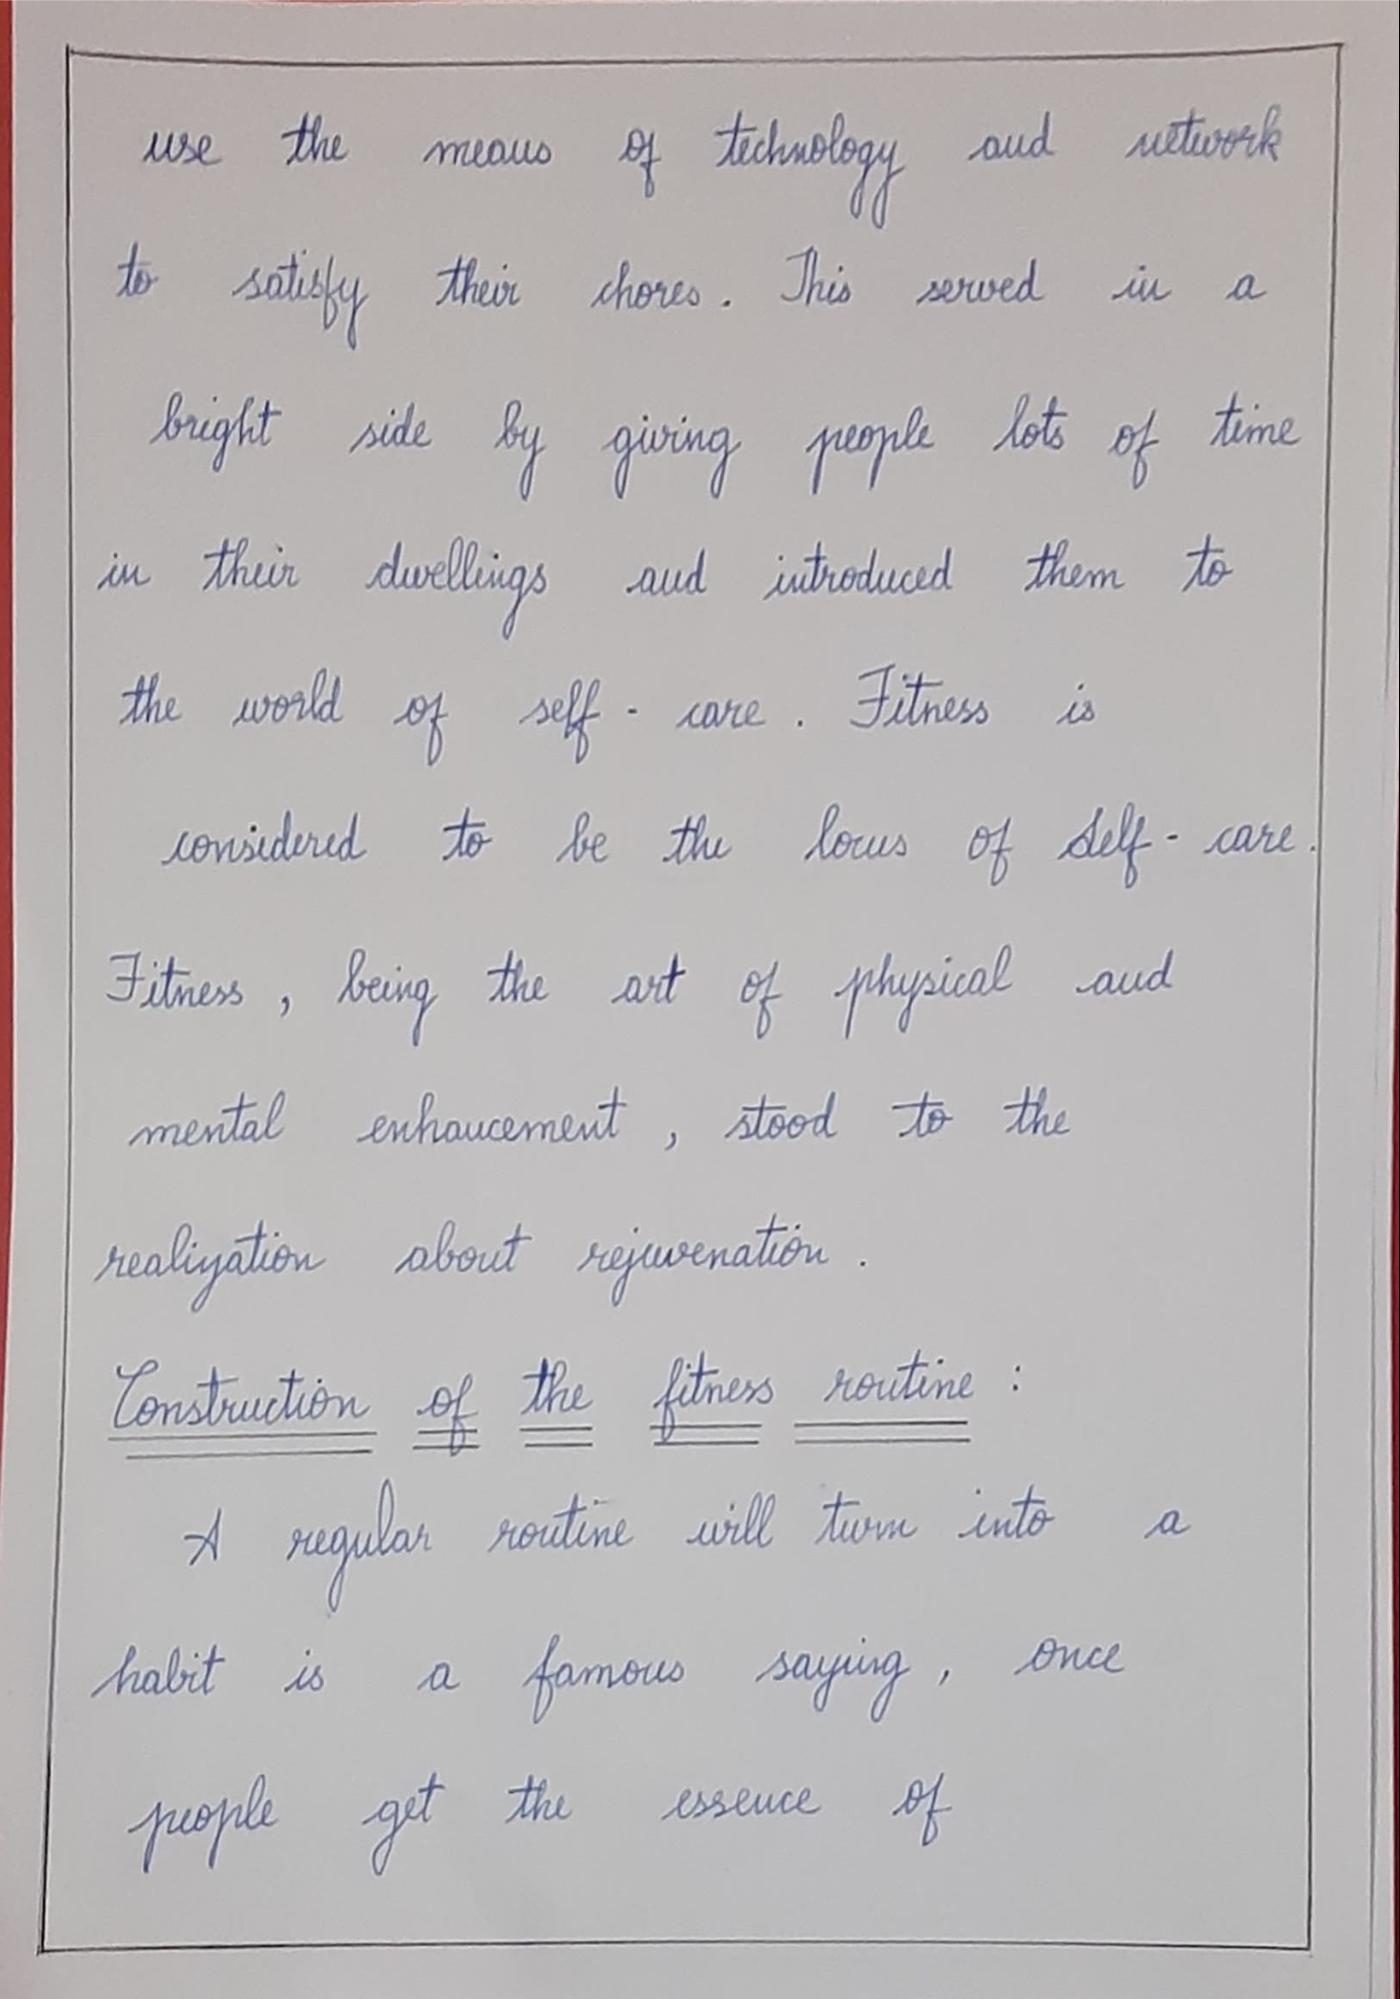 use the means of technology and network
to satisfy their chores. This served in a
bright side by giving people lots of time
in their dwellings and introduced them to
the world of self - care. Fitness is
considered to be the locus of self - care.
Fitness, being the art of physical and
mental enhancement, stood to the
realization about rejuvenation.
Construction of the fitness routine :
A regular routine will turn into a
habit is a famous saying, once
people get the essence of